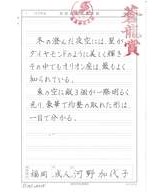 蒼龍賞
冬の澄んだ夜空には、星が
ダイヤモンドのように美しく輝き
その中でもオリオン座は最もよく
知られている。
東の空に縦3個が一際明るく
光り、豪華で均整の取れた形は
一目で分かる。
福岡 成人 河野加代子